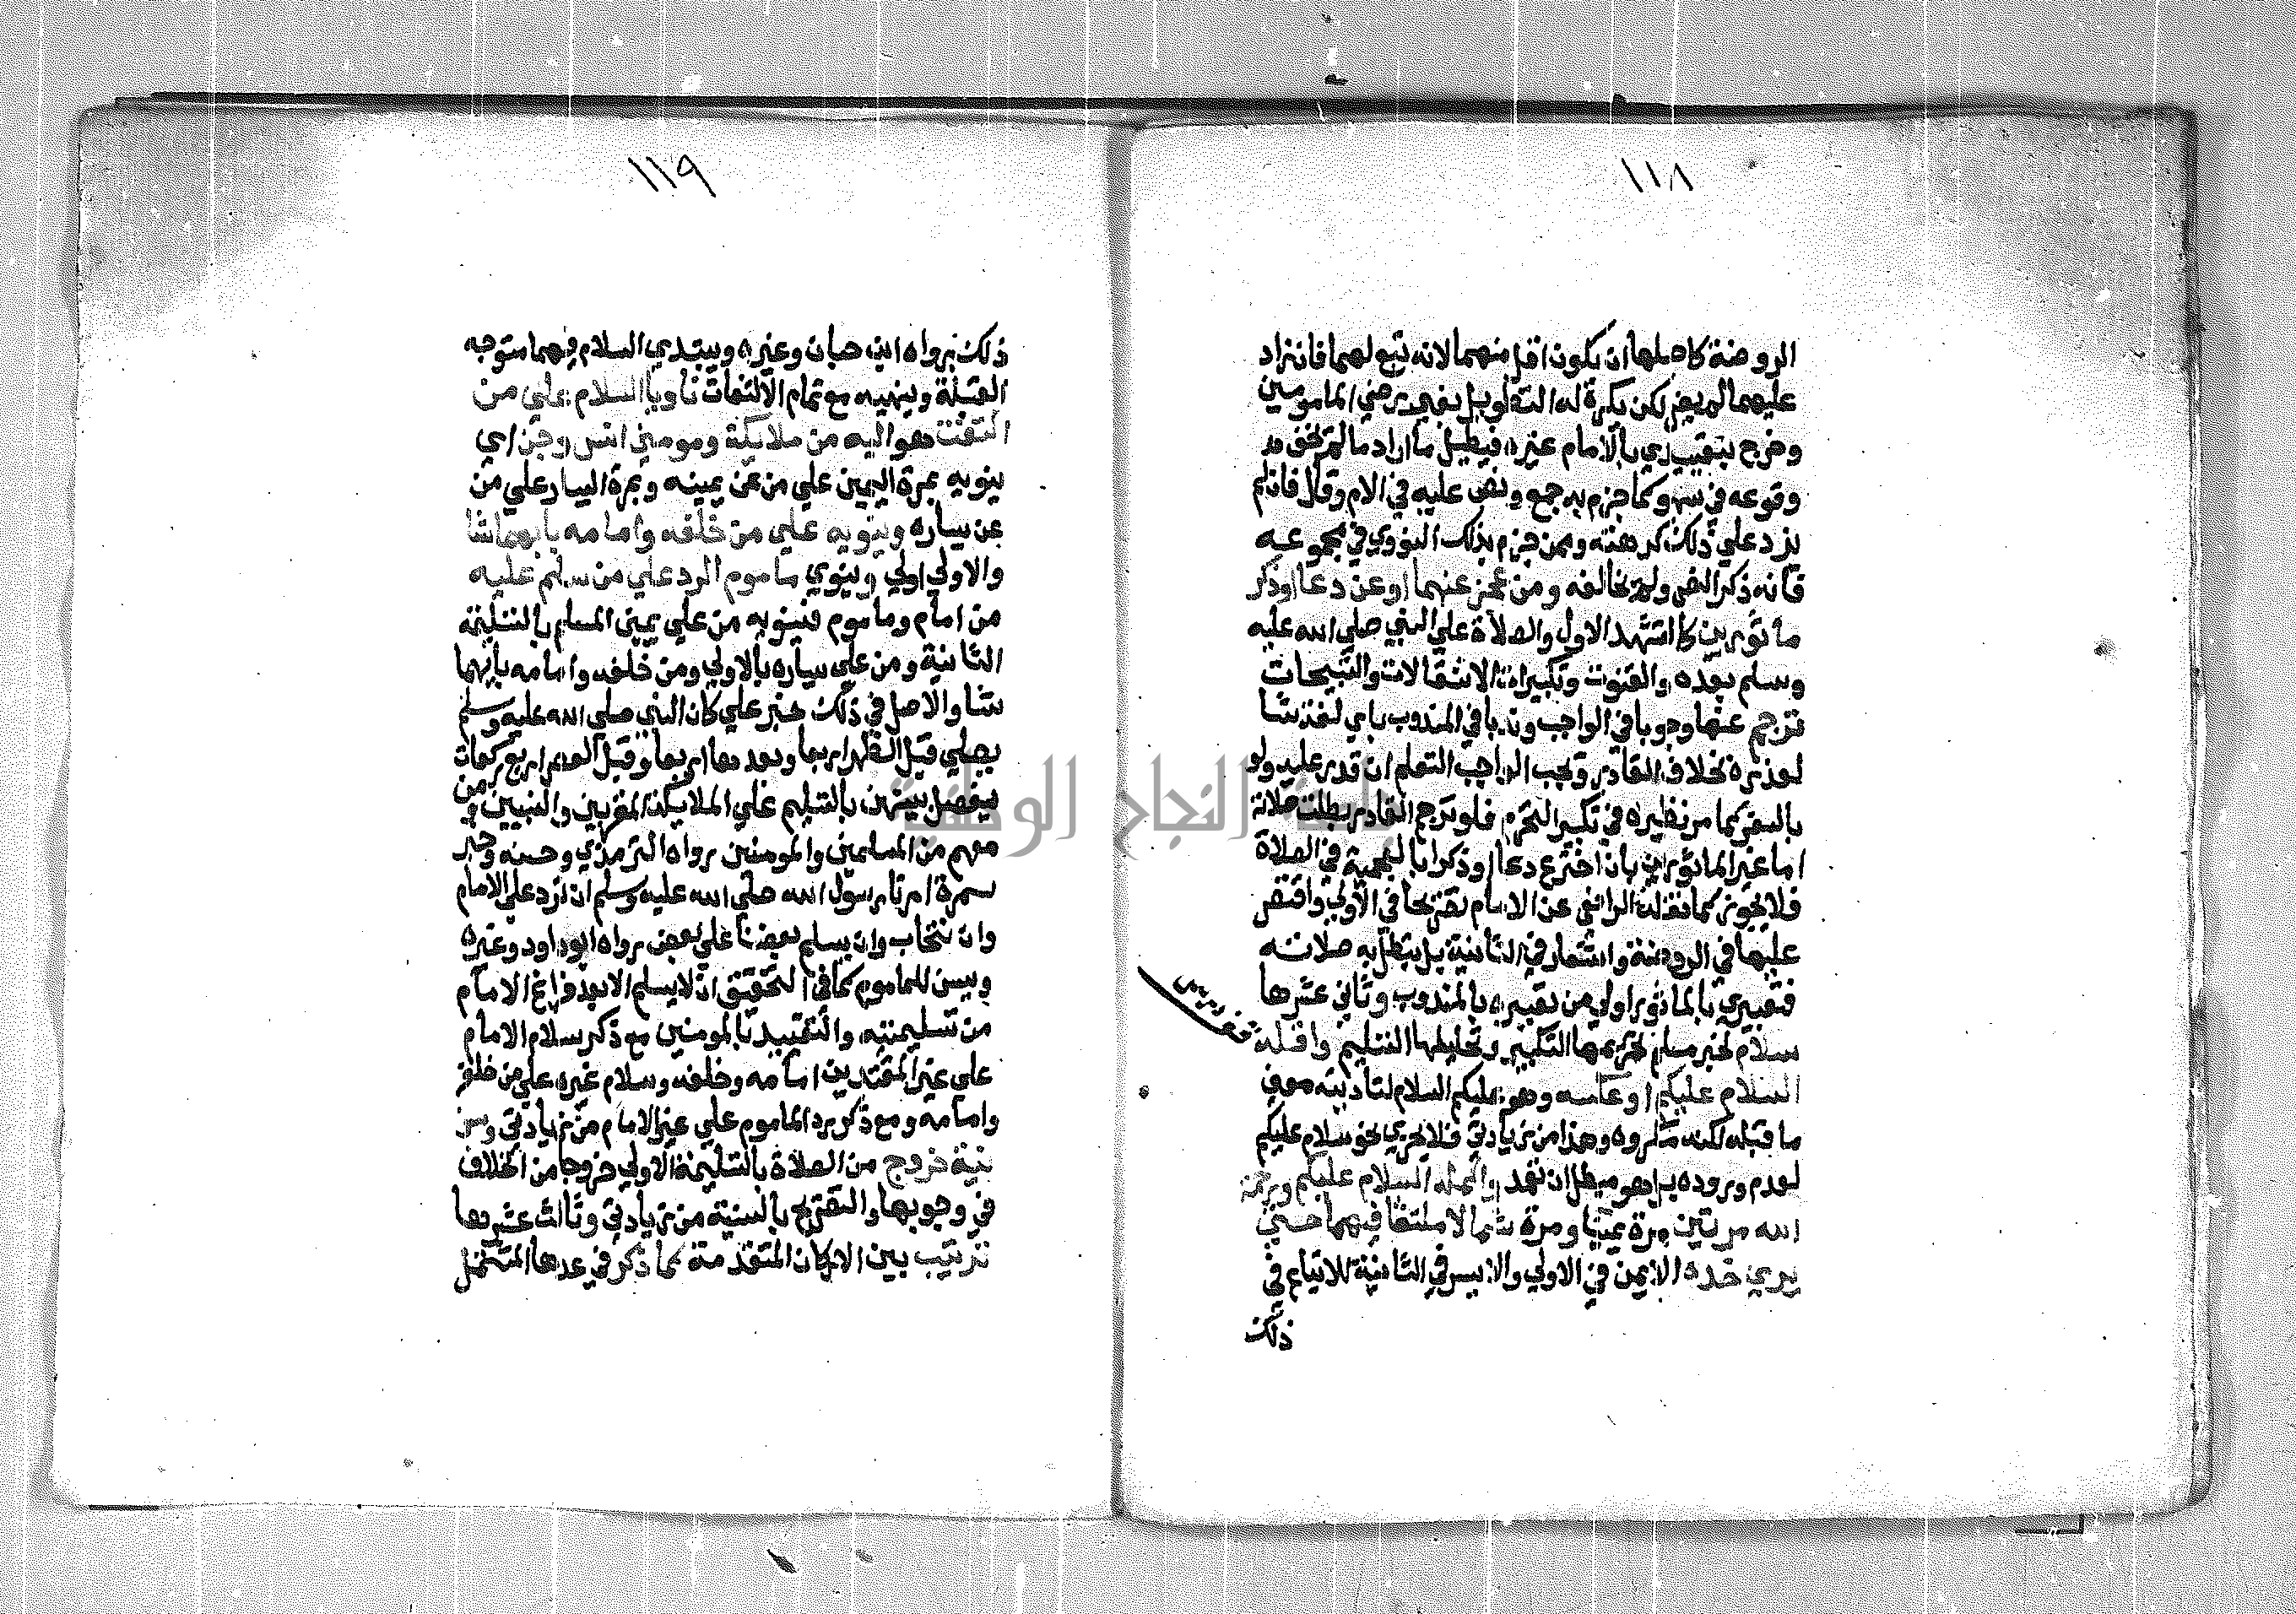 ١١٨
الروضة كاصلها ان يكون اقل منهما لانه تبع لهما فان زاد
عليهما لم يضر لكن يكره له التطويل بغير رضي المامومين
وخرج بتقييدي بالامام غيره فيطيل ما اراد ما لم يخف
وقوعه في سهو كما جزم به جمع ونص عليه في الام وقال فان لم
يزد علي ذلك كرهته وممن جزم بذلك النووي في مجموعه
فانه ذكر النص ولم يخالفه ومن عجز عنهما او عن دعا او ذكر
ماثورين كالتشهد الاول والصلاة علي النبي صلي الله عليه
وسلم بعده والقنوت وتكبيرات الانتقالات والتسبيحات
ترجم عنها وجوبا في الواجب وندبا في المندوب باي لغة شا
لعذره بخلاف القادر ويجب الواجب التعلم ان قدر عليه ولو
بالسفر كما مر نظيره في تكبير التحرم فلو ترجم القادر بطلت صلاته
اما غير الماثورين بان اخترع دعا او ذكرا بالعجمية في الصلاة
فلا يجوز كما نقله الرافعي عن الامام تصريحا في الاولي واقتصر
عليها في الروضة واشعارا في الثانية بل تبطل به صلاته
فتعبيري بالماثور اولي من تعبيره بالمندوب وثاني عشرها
سلام لخبر مسلم تحريمها التكبير وتحليلها التسليم واقله
السلام عليكم او عكسه وهو عليكم السلام لتاديته معني
ما قبله لكنه مكروه وهذا من زيادتي فلا يجزي نحو سلام عليكم
لعدم وروده بل هو مبطل ان تعمد واكمله السلام عليكم ورحمة
الله مرتين مرة يمينا ومرة شمالا ملتفتا فيهما حتي
يري خده الايمن في الاولي والايسر في الثانية للاتباع في
ذلك
١١٩
ذلك رواه ابن حبان وغيره ويبتدي السلام فيهما متوجه
القبلة وينهيه مع تمام الالتفات ناويا السلام علي من
التفت هو اليه من ملايكة ومومني انس وجن اي
ينويه بمرة اليمين علي من عن يمينه وبمرة اليسار علي من
عن يساره وينويه علي من خلفه وامامه بايهما شا
والاولي اولي وينوي ماموم الرد علي من سلم عليه
من امام وماموم فينويه من علي يمين المسلم بالتسليمة
الثانية ومن علي يساره بالاولي ومن خلفه وامامه بايهما
شا والاصل في ذلك خبر علي كان النبي صلي الله عليه وسلم
يصلي قبل الظهر اربعا وبعدها اربعا وقبل العصر اربع ركعات
يفصل بينهن بالتسليم علي الملايكة المقربين والنبيين ومن
معهم من المسلمين والمومنين رواه الترمذي وحسنه وخبر
سمرة امرنا رسول الله صلي الله عليه وسلم ان نرد علي الامام
وان نتحاب وان يسلم بعضنا علي بعض رواه ابو داود وغيره
ويسن للماموم كما في التحقيق ان لا يسلم الا بعد فراغ الامام
من تسليمتيه والتقييد بالمومنين مع ذكر سلام الامام
علي غير المقتدين امامه وخلفه وسلام غيره علي من خلفه
وامامه ومع ذكر رد الماموم علي غير الامام من زيادتي وسن
نية خروج من الصلاة بالتسليمة الاولي خروجا من الخلاف
في وجوبها والتصريح بالسنية من زيادتي وثالث عشرها
ترتيب بين الاركان المتقدمة كما ذكر في عدها المشتمل
جامعة النجاح الوطنية